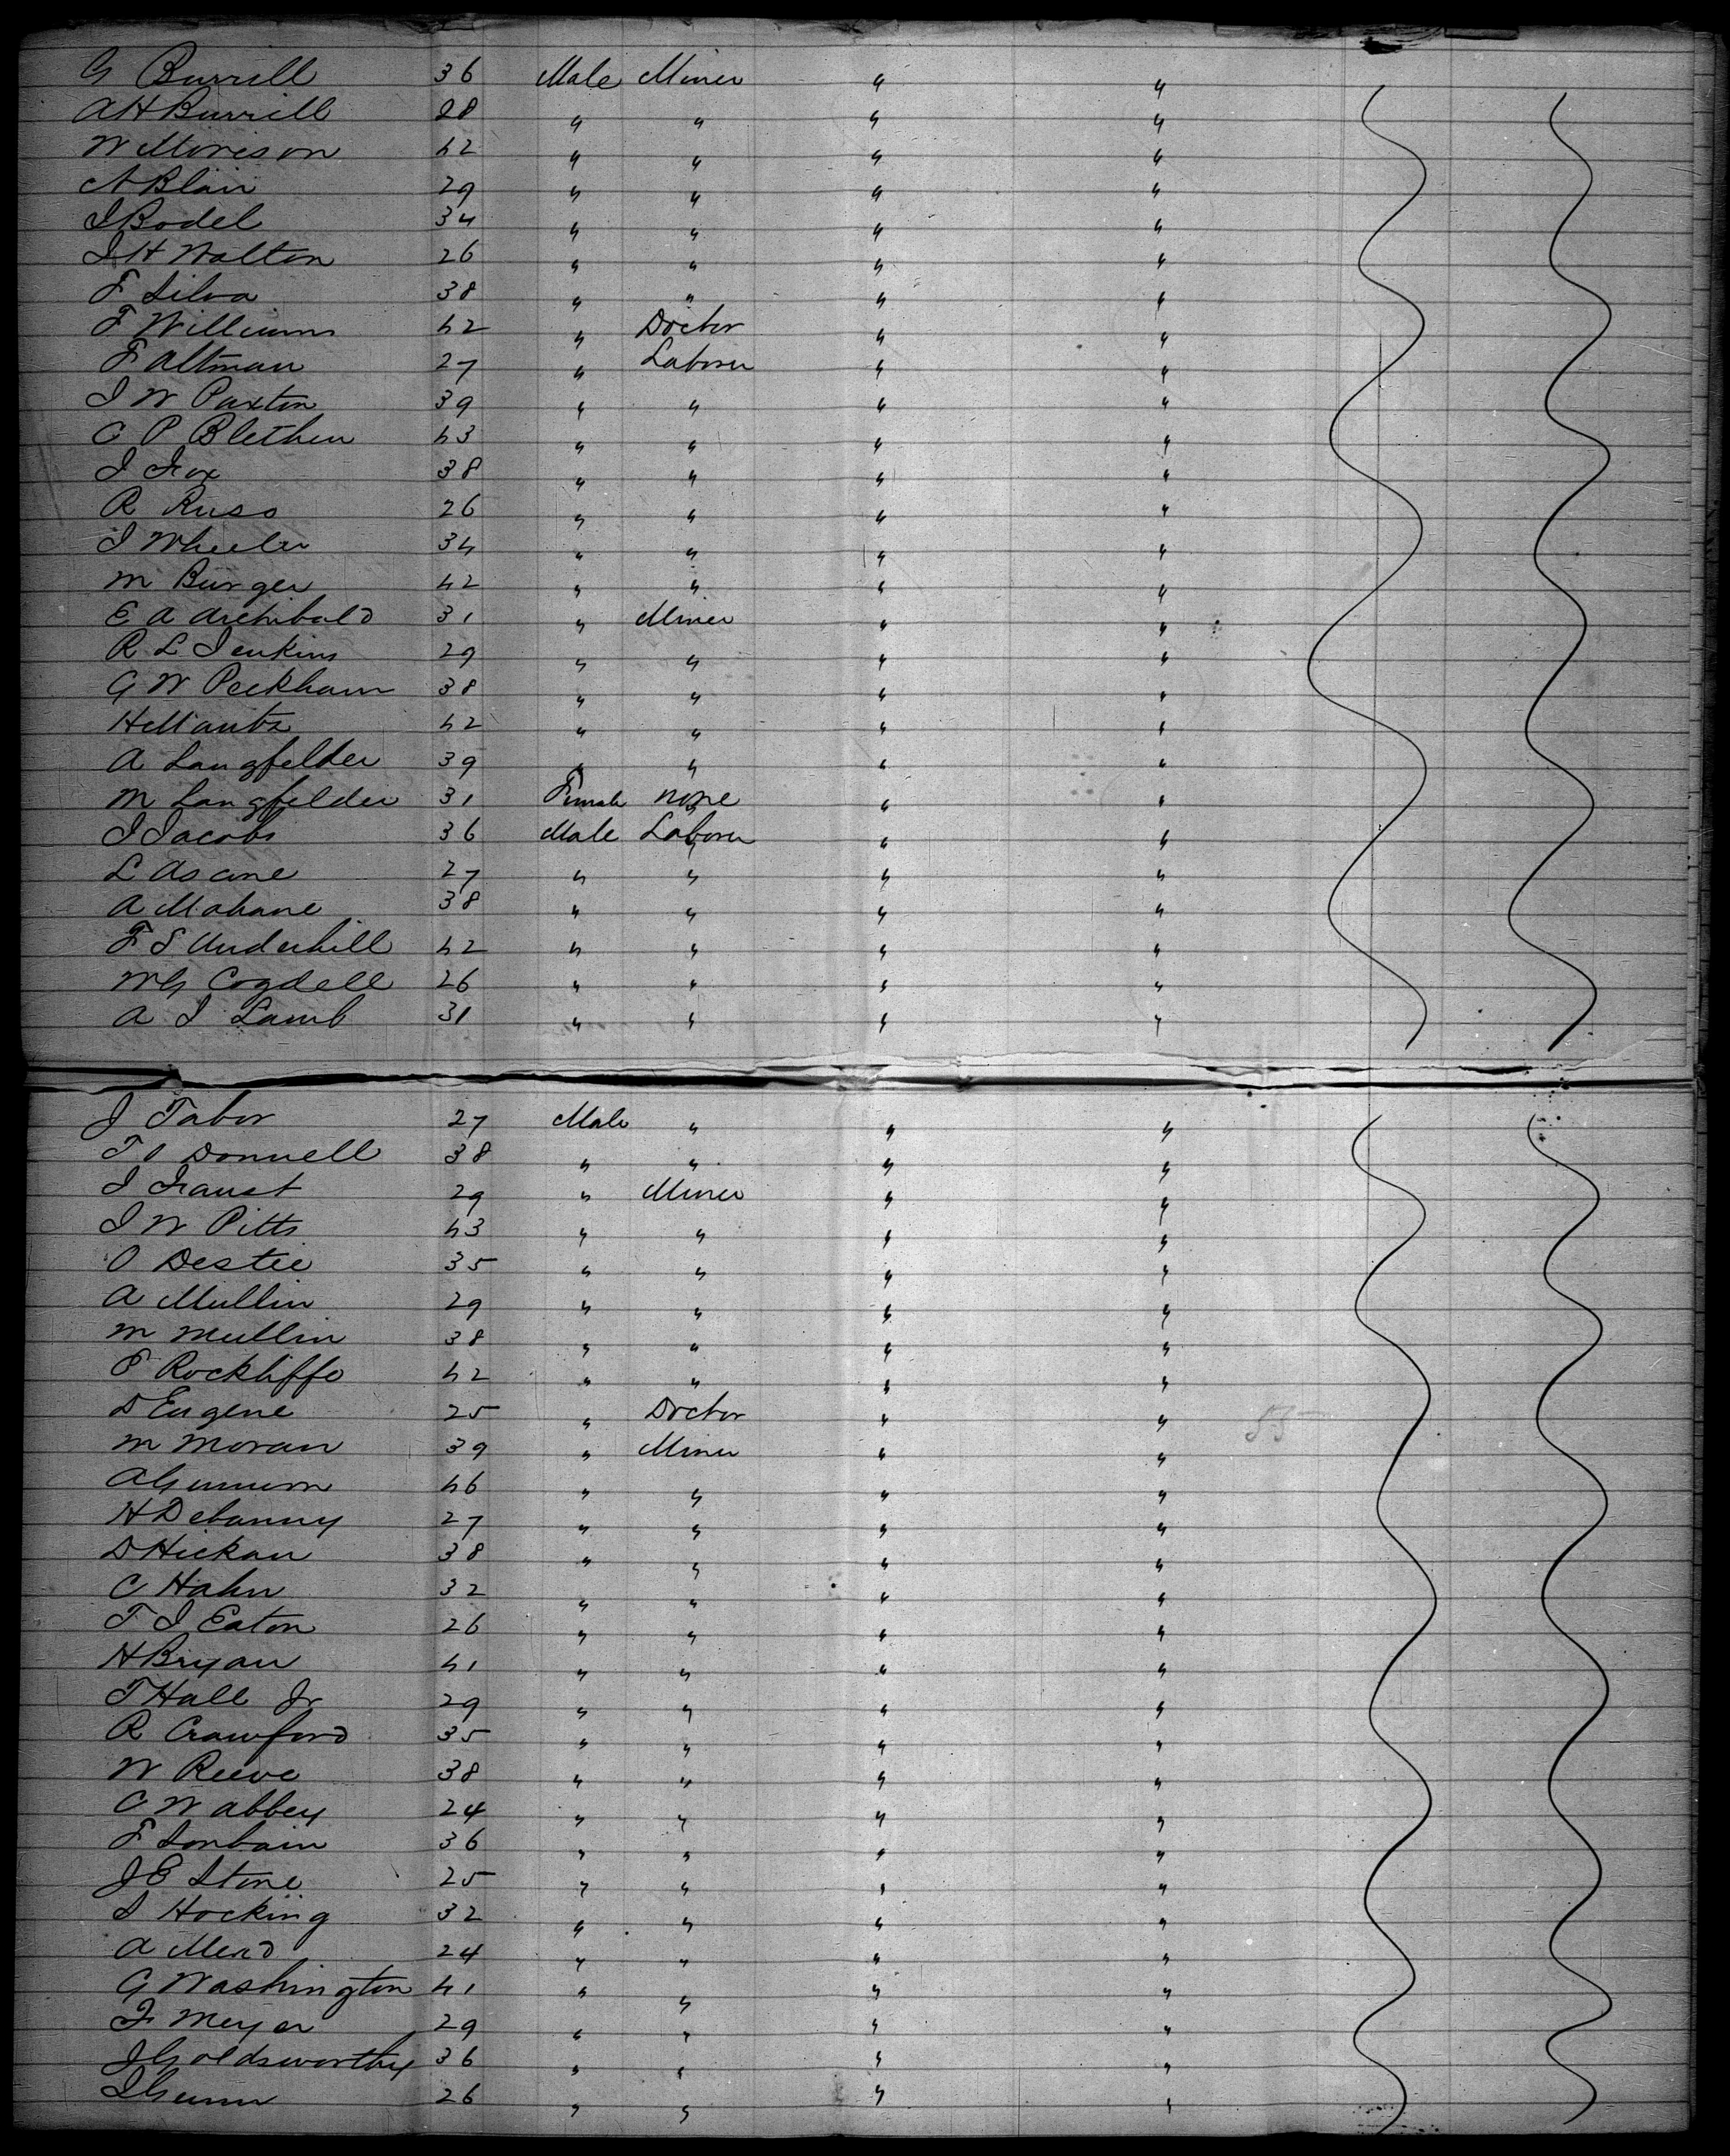 G Burrill 36 Male Miner " "
A H Burrill 28 " " " "
W Morison 42 " " " "
A Blair 29 " " " "
J Bodel 34 " " " "
J H Walton 26 " " " "
F Silva 38 " " " "
F Williams 42 " Doctor " "
F Altman 27 " Laborer " "
J W Paxton 39 " " " "
C P Blethen 43 " " " "
J Fox 38 " " " "
R Russ 26 " " " "
J Wheeler 34 " " " "
M Burger 42 " " " "
E A Archibald 31 " Miner " "
R L Jenkins 29 " " " "
G W Peckham 38 " " " "
H Mautz 42 " " " "
A Langfelder 39 " " " "
M Langfelder 31 Female none " "
J Jacobs 36 Male Laborer " "
L Ascane 27 " " " "
A Mahane 38 " " " "
F S Underhill 42 " " " "
W G Cogdell 26 " " " "
A J Lamb 31 " " " "
J Tabor 27 Male " " "
T O Donnell 38 " " " "
J Faust 29 " Miner " "
J W Pitts 43 " " " "
O Destie 35 " " " "
A Mullin 29 " " " "
M Mullin 38 " " " "
P Rockliffe 42 " " " "
D Eugene 25 " Doctor " "
M Moran 39 " Miner " "
A 46 " " " "
H Debanny 27 " " " "
D Hickan 38 " " " "
C Hahn 32 " " " "
T J Eaton 26 " " " "
H Bryan 41 " " " "
T Hall Jr 29 " " " "
R Crawford 35 " " " "
W Reeve 38 " " " "
C W Abbey 24 " " " "
F 36 " " " "
J E Stone 25 " " " "
S Hocking 32 " " " "
A Mead 24 " " " "
G Washington 41 " " " "
F Meyer 29 " " " "
J Goldsworthy 36 " " " "
J Gunn 26 " " " "